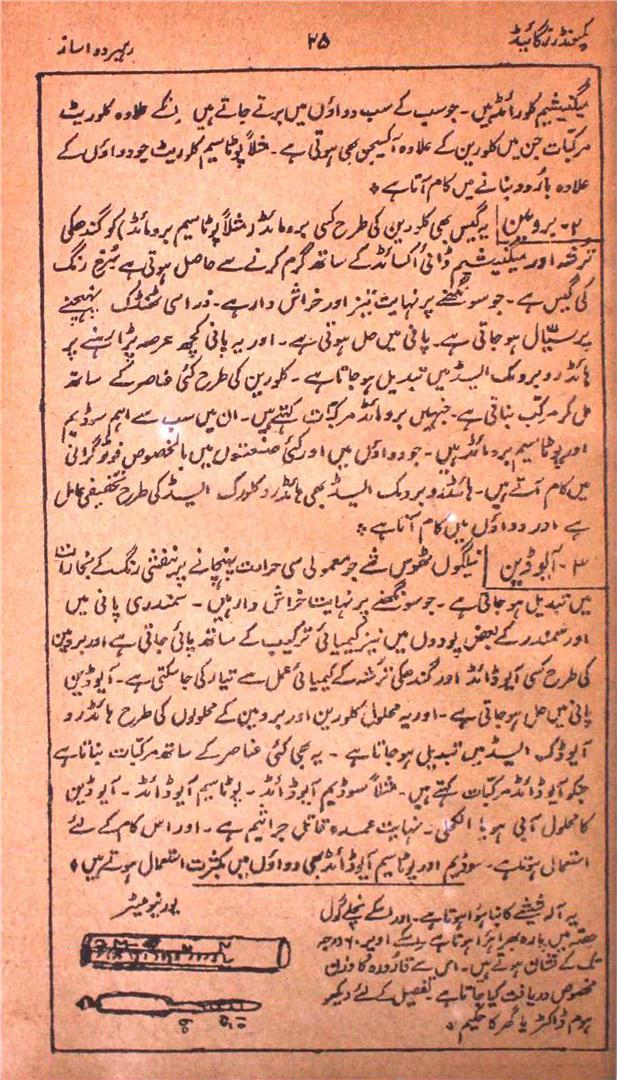 کمپونڈرز گائیڈ
۲۵
رہبر دوا ساز
میگنیشیم کلورائڈ ہیں۔ جو سب کے سب دواؤں میں برتے جاتے ہیں انکے علاوہ کلوریٹ
مرکبات جن میں کلورین کے علاوہ آکسیجن بھی ہوتی ہے۔ مثلاً پوٹاسیم کلوریٹ جو دواؤں کے
علاوہ بارُود بنانے میں کام آتا ہے۔
۲۔ برومین یہ گیس بھی کلورین کی طرح کسی برومائڈ (مثلاً پوٹاسیم برومائڈ) کو گندھکی
تُرشہ اور میگنیشیم ڈائی آکسائڈ کے ساتھ گرم کرنے سے حاصل ہوتی ہے سُرخ رنگ
کی گیس ہے۔ جو سونگھنے پر نہایت تیز اور خراش دار ہے۔ ذرا سی ٹھنڈک پہنچنے
پر سیّال ہو جاتی ہے۔ پانی میں حل ہوتی ہے۔ اور یہ پانی کچھ عرصہ پڑا رہنے پر
ہائڈرو برومک ایسڈ میں تبدیل ہو جاتا ہے۔ کلورین کی طرح کئی عناصر کے ساتھ
مل کر مرکب بناتی ہے۔ جنہیں برومائڈ مرکبات کہتے ہیں۔ ان میں سب سے اہم سوڈیم
اور پوٹاسیم برومائڈ ہیں۔ جو دواؤں میں اور کئی صنعتوں میں بالخصوص فوٹوگرافی
میں کام آتے ہیں۔ ہائڈرو برومک ایسڈ بھی ہائڈروکلورک ایسڈ کی طرح تخفیفی عامل
ہے اور دواؤں میں کام آتا ہے۔
۳۔ آیوڈین نیلگوں ٹھوس شے جو معمولی سی حرارت پہنچانے پر بنفشی رنگ کے بخارات
میں تبدیل ہو جاتی ہے۔ جو سونگھنے پر نہایت خراش دار ہیں۔ سمندری پانی میں
اور سمندر کے بعض پودوں میں نیز کیمیائی ترکیب کے ساتھ پائی جاتی ہے اور برومین
کی طرح کسی آیوڈائڈ اور گندھکی تُرشہ کے کیمیائی عمل سے تیار کی جا سکتی ہے۔ آیوڈین
پانی میں حل ہو جاتی ہے۔ اور یہ محلول کلورین اور برومین کے محلولوں کی طرح ہائڈرو
آیوڈک ایسڈ میں تبدیل ہو جاتا ہے۔ یہ بھی کئی عناصر کے ساتھ مرکبات بناتا ہے
جنکو آیوڈائڈ مرکبات کہتے ہیں۔ مثلاً سوڈیم آیوڈائڈ۔ پوٹاسیم آیوڈائڈ۔ آیوڈین
کا محلول آبی ہو یا الکحلی۔ نہایت عمدہ قاتل جراثیم ہے۔ اور اس کام کے لئے
استعمال ہوتا ہے۔ سوڈیم اور پوٹاسیم آیوڈائڈ بھی دواؤں میں بکثرت استعمال ہوتے ہیں۔
یورینومیٹر
یہ آلہ شیشے کا بنا ہوا ہوتا ہے۔ اور اسکے نچلے گول
حصّہ میں پارہ بھرا ہوا ہوتا ہے۔ اسکے اوپر ۶۰ درجہ
تک کے نشان ہوتے ہیں۔ اس سے قارورہ کا وزن
مخصوص دریافت کیا جاتا ہے۔ تفصیل کے لئے دیکھو
ہوم ڈاکٹر یا گھر کا حکیم۔